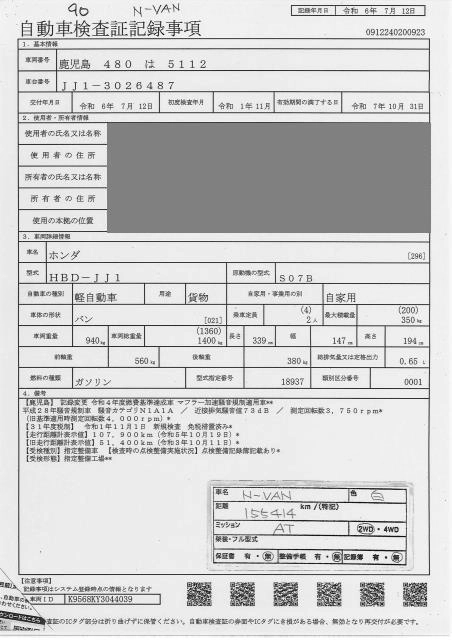 90 N-VAN
記録年月日 令和 6年 7月 12日
自動車検査証記録事項
0912240200923
1. 基本情報
車両番号 鹿児島 480 は 5112
車台番号 JJ1-3026487
交付年月日 令和 6年 7月 12日 初度検査年月 令和 1年 11月 有効期間の満了する日 令和 7年 10月 31日
2. 使用者・所有者情報
使用者の氏名又は名称
使用者の住所
所有者の氏名又は名称
所有者の住所
使用の本拠の位置
3. 車両詳細情報
車名 ホンダ [296]
型式 HBD-JJ1 原動機の型式 S07B
自動車の種別 軽自動車 用途 貨物 自家用・事業用の別 自家用
車体の形状 バン [021] 乗車定員 (4) 2人 最大積載量 (200) 350kg
車両重量 940kg 車両総重量 (1360) 1400kg 長さ 339cm 幅 147cm 高さ 194cm
前軸重 560kg 後軸重 380kg 総排気量又は定格出力 0.65 L
燃料の種類 ガソリン 型式指定番号 18937 類別区分番号 0001
4. 備考
【鹿児島】 記録変更 令和4年度燃費基準達成車 マフラー加速騒音規制適用車**
平成28年騒音規制車 騒音カテゴリN1A1A / 近接排気騒音値73dB / 測定回転数3,750rpm*
(旧基準適用時測定回転数4,000rpm)*
【31年度税制】 令和1年11月1日 新規検査 免税措置済み*
【走行距離計表示値】107,900km(令和5年10月19日)*
【旧走行距離計表示値】51,400km(令和3年10月11日)*
【受検種別】指定整備車 【検査時の点検整備実施状況】点検整備記録簿記載あり*
【受検形態】指定整備工場**
車名 N-VAN 色 白
距離 155414 km/(特記)
ミッション AT 2WD・4WD
架装・フル型式
保証書 有・無 整備手帳 有・無 記録簿 有・無
【注意事項】
記録事項はシステム登録時点の情報となります
車両ID K9568KY3044039
検査証のICタグ部分は折り曲げずに保管ください。自動車検査証の券面やICタグに き損がある場合、無効となり再交付が必要です。